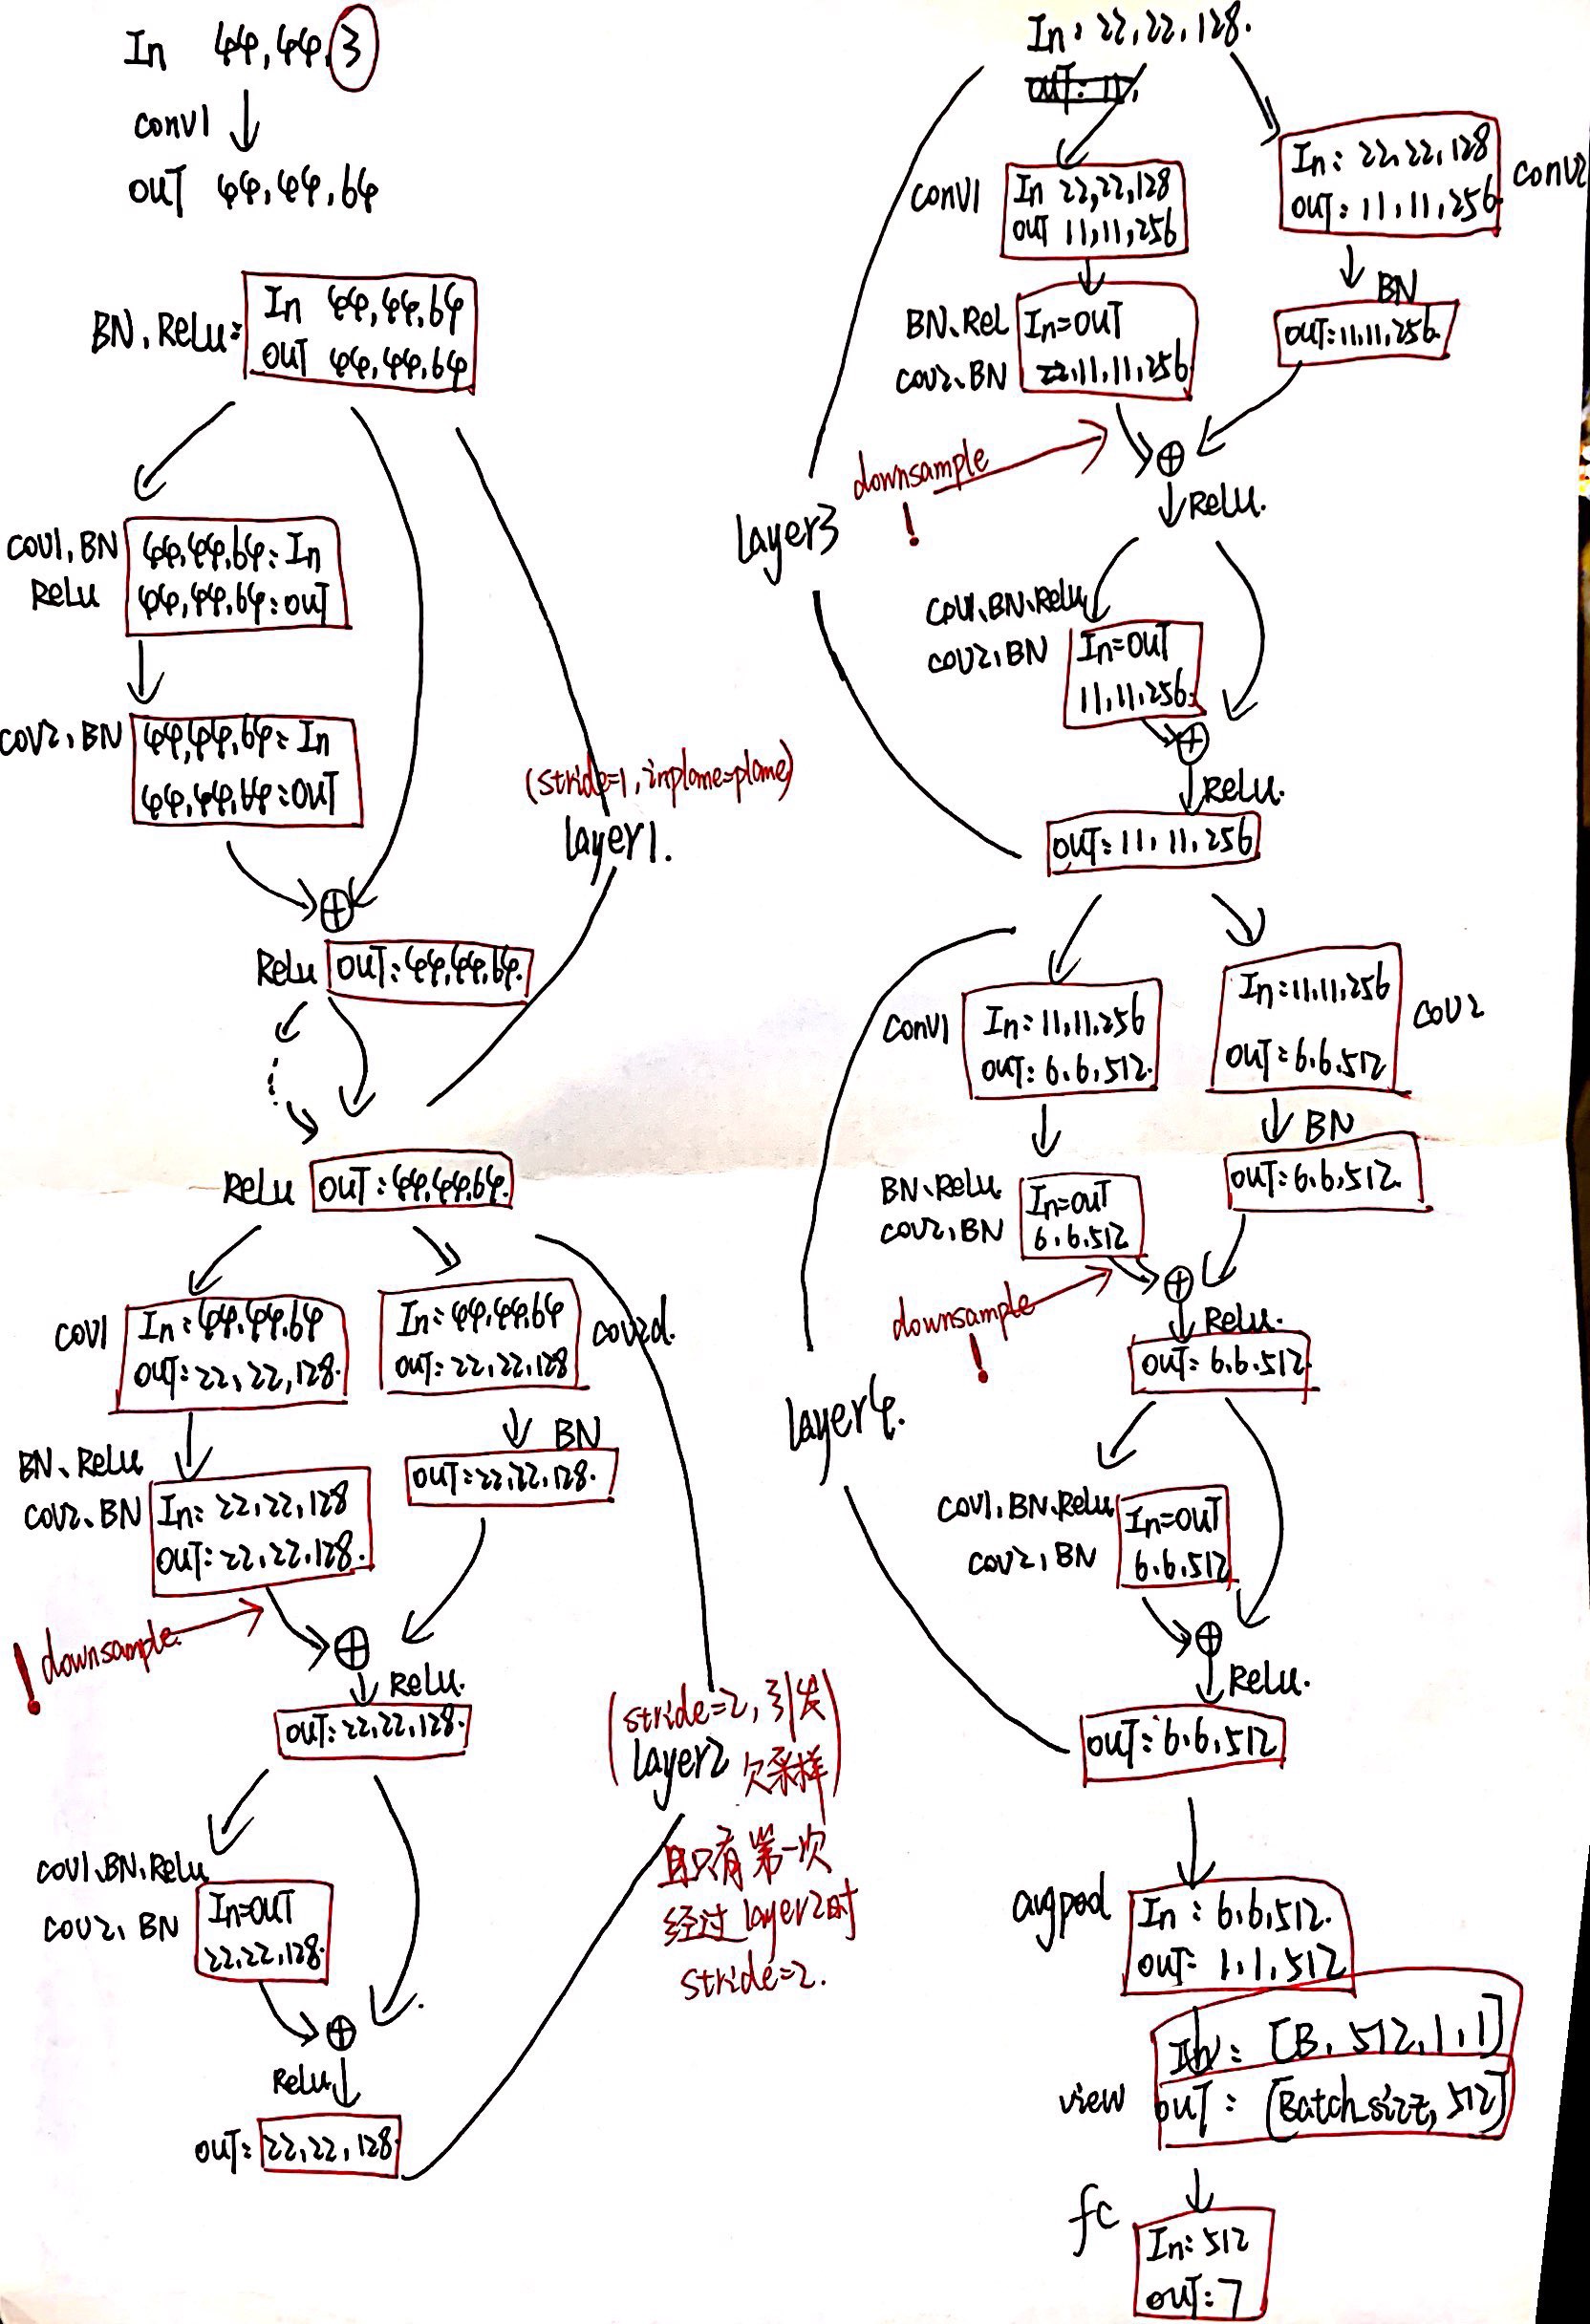 In 44,44,3
conv1
out 44,44,64
BN,Relu:
In 44,44,64
out 44,44,64
cov1,BN
Relu
44,44,64:In
44,44,64:out
cov2,BN
44,44,64:In
44,44,64:out
(stride=1,inplane=plane)
layer1.
Relu
out:44,44,64.
Relu
out:44,44,64.
cov1
In:44,44,64
out:22,22,128.
In:44,44,64
out:22,22,128
cov2d.
BN、Relu
cov2、BN
In:22,22,128
out:22,22,128.
BN
out:22,22,128.
! downsample.
Relu.
out:22,22,128.
(stride=2,引发
layer2 欠采样)
且只有第一次
经过layer2时
stride=2.
cov1、BN、Relu
cov2、BN
In=out
22,22,128.
Relu
out:22,22,128.
In:22,22,128.
out:11,
conv1
In 22,22,128
out 11,11,256
In:22,22,128
out:11,11,256.
conv2
BN、Rel
cov2、BN
In=out
22,11,11,256
BN
out:11,11,256.
downsample
!
Relu.
layer3
cov1、BN、Relu
cov2,BN
In=out
11,11,256.
Relu.
out:11,11,256
conv1
In:11,11,256
out:6,6,512.
In:11,11,256
out:6,6,512
cov2
BN、Relu
cov2,BN
In=out
6,6,512
BN
out:6,6,512.
downsample
!
Relu.
out:6,6,512.
layer4.
cov1、BN、Relu
cov2,BN
In=out
6,6,512
Relu.
out:6,6,512
avgpool
In:6,6,512.
out:1,1,512
view
In:[B,512,1,1]
out:[Batch_size,512]
fc
In:512
out:7